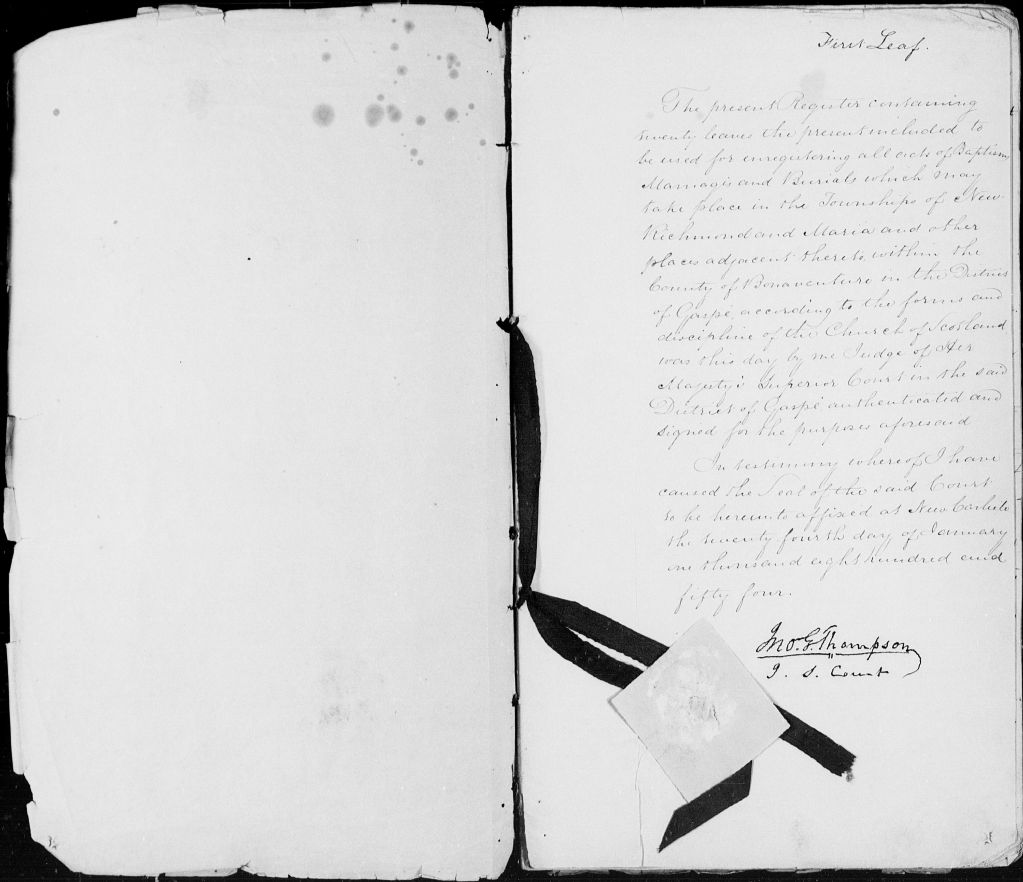 First Leaf.
The present Register containing
twenty leaves the present included to
be used for enregistering all acts of Baptism
Marriages and Burials which may
take place in the Townships of New
Richmond and Maria and other
places adjacent thereto within the
County of Bonaventure in the District
of Gaspé according to the forms and
discipline of the Church of Scotland
was this day by me Judge of Her
Majesty's Superior Court in the said
District of Gaspé authenticated and
signed for the purposes aforesaid
In testimony whereof I have
caused the Seal of the said Court
to be hereunto affixed at New Carlisle
the twenty fourth day of January
one thousand eight hundred and
fifty four.
Jno. G. Thompson
J. S. Court